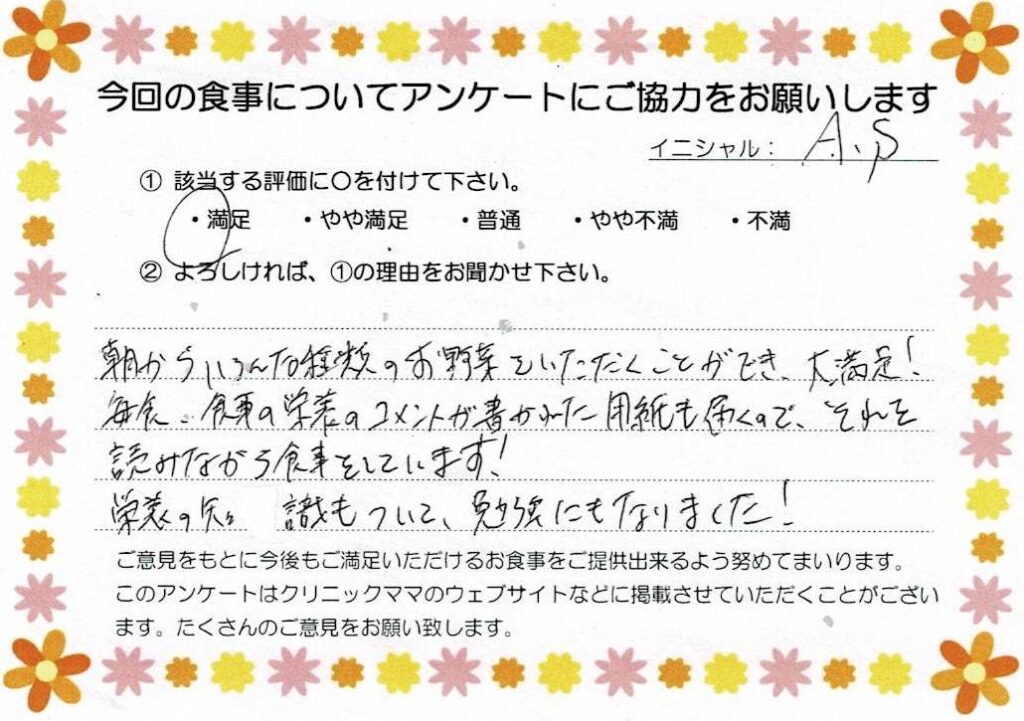 今回の食事についてアンケートにご協力をお願いします
イニシャル： A.S
① 該当する評価に〇を付けて下さい。
・満足 ・やや満足 ・普通 ・やや不満 ・不満
② よろしければ、①の理由をお聞かせ下さい。
朝からいろんな種類のお野菜をいただくことができ、大満足！
毎食、食事の栄養のコメントが書かれた用紙も届くので、それを
読みながら食事をしています！
栄養の知識もついて、勉強にもなりました！
ご意見をもとに今後もご満足いただけるお食事をご提供出来るよう努めてまいります。
このアンケートはクリニックママのウェブサイトなどに掲載させていただくことがござい
ます。たくさんのご意見をお願い致します。